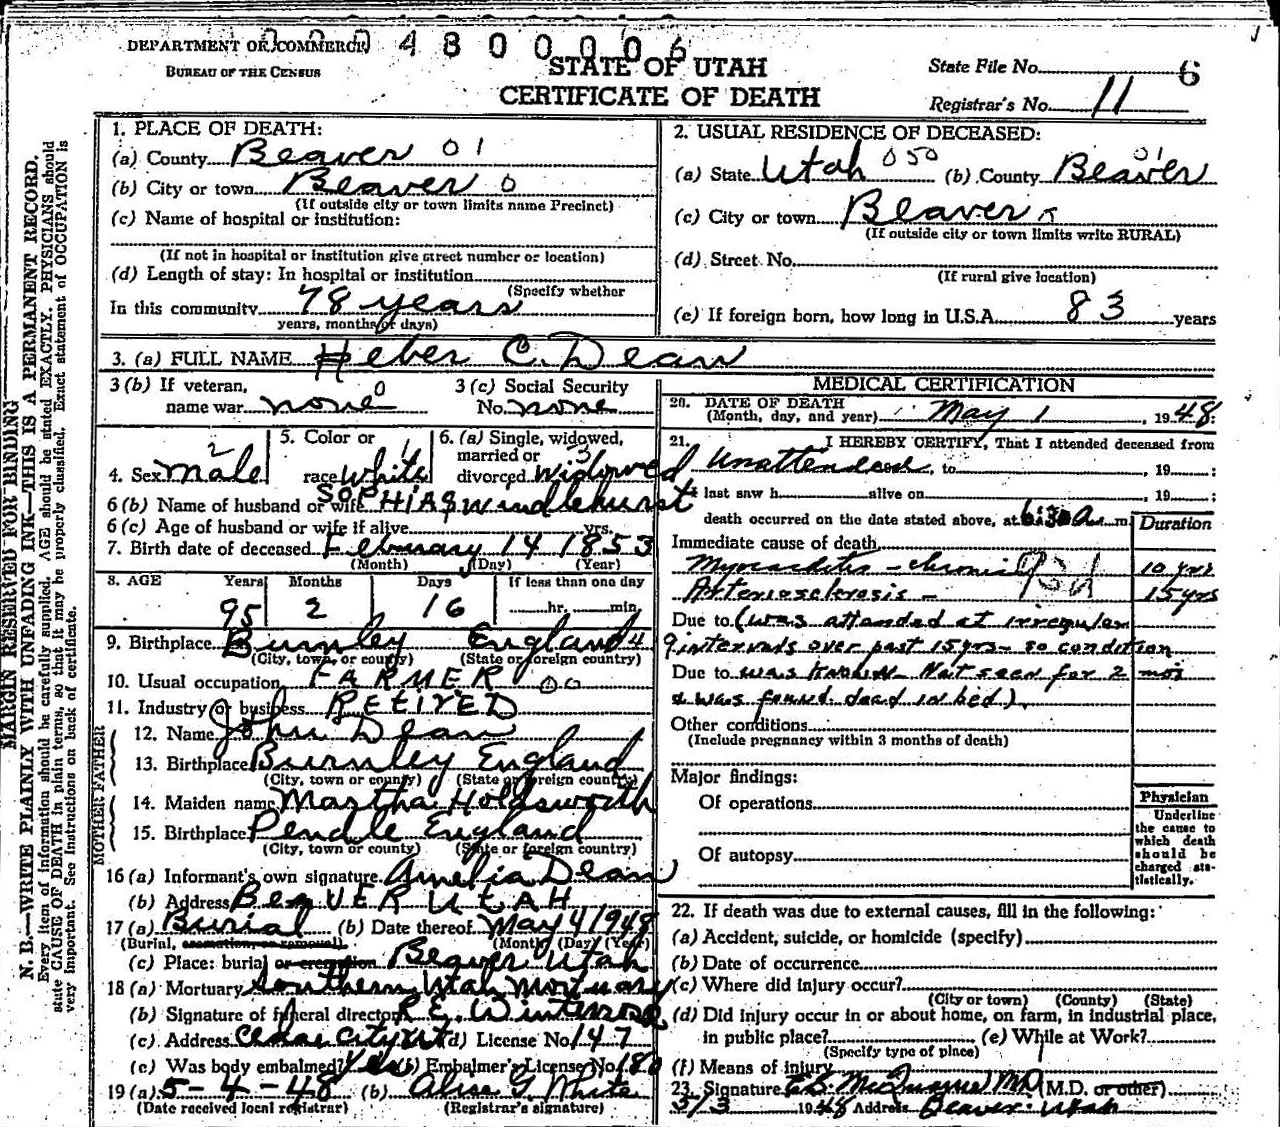 0 0 0 4 8 0 0 0 0 6
DEPARTMENT OF COMMERCE
BUREAU OF THE CENSUS
STATE OF UTAH
CERTIFICATE OF DEATH
State File No. 6
Registrar's No. 11
MARGIN RESERVED FOR BINDING
N. B.—WRITE PLAINLY WITH UNFADING INK—THIS IS A PERMANENT RECORD.
Every item of information should be carefully supplied. AGE should be stated EXACTLY. PHYSICIANS should
state CAUSE OF DEATH in plain terms, so that it may be properly classified. Exact statement of OCCUPATION is
very important. See instructions on back of certificate.
1. PLACE OF DEATH:
(a) County Beaver 01
(b) City or town Beaver 0
(If outside city or town limits name Precinct)
(c) Name of hospital or institution:
(If not in hospital or institution give street number or location)
(d) Length of stay: In hospital or institution
(Specify whether
In this community 78 years
years, months or days)
2. USUAL RESIDENCE OF DECEASED:
(a) State Utah 050 (b) County Beaver 01
(c) City or town Beaver
(If outside city or town limits write RURAL)
(d) Street No.
(If rural give location)
(e) If foreign born, how long in U.S.A. 83 years
3. (a) FULL NAME Heber C. Dean
3 (b) If veteran, name war none 0
3 (c) Social Security No. none
4. Sex male 2
5. Color or race white 1
6. (a) Single, widowed, married or divorced widowed 3
6 (b) Name of husband or wife SOPHIA Swindlehurst
6 (c) Age of husband or wife if alive yrs.
7. Birth date of deceased February 14 1853
(Month) (Day) (Year)
8. AGE Years Months Days If less than one day
95 2 16 hr. min.
9. Birthplace Burnley England 4
(City, town, or county) (State or foreign country)
10. Usual occupation FARMER 00
11. Industry or business RETIRED
FATHER
12. Name John Dean
13. Birthplace Burnley England
(City, town or county) (State or foreign country)
MOTHER
14. Maiden name Martha Holdsworth
15. Birthplace Pendle England
(City, town or county) (State or foreign country)
16 (a) Informant's own signature Amelia Dean
(b) Address BEAVER UTAH
17 (a) Burial (b) Date thereof May 4 1948
(Burial, cremation, or removal) (Month) (Day) (Year)
(c) Place: burial or cremation Beaver Utah
18 (a) Mortuary Southern Utah Mortuary
(b) Signature of funeral director R.E. Winterose
(c) Address Cedar City Ut (d) License No. 147
(e) Was body embalmed? Yes (f) Embalmer's License No. 180
19 (a) 5-4-48 (b) Alice G. White
(Date received local registrar) (Registrar's signature)
MEDICAL CERTIFICATION
20. DATE OF DEATH
(Month, day, and year) May 1, 1948
21. I HEREBY CERTIFY, That I attended deceased from
Unattended, to , 19 ;
I last saw h alive on , 19 ;
death occurred on the date stated above, at 6:30 a. m.
Duration
Immediate cause of death
Myocarditis - chronic 10 yrs
Arteriosclerosis - 15 yrs
Due to (was attended at irregular
intervals over past 15 yrs - so condition
Due to was known. Not seen for 2 mos
& was found dead in bed).
Other conditions
(Include pregnancy within 3 months of death)
Major findings:
Of operations
Of autopsy
Physician
Underline
the cause to
which death
should be
charged sta-
tistically.
22. If death was due to external causes, fill in the following:
(a) Accident, suicide, or homicide (specify)
(b) Date of occurrence
(c) Where did injury occur?
(City or town) (County) (State)
(d) Did injury occur in or about home, on farm, in industrial place,
in public place? (e) While at Work?
(Specify type of place)
(f) Means of injury
23. Signature (M.D. or other)
5/3 1948 Address Beaver, Utah